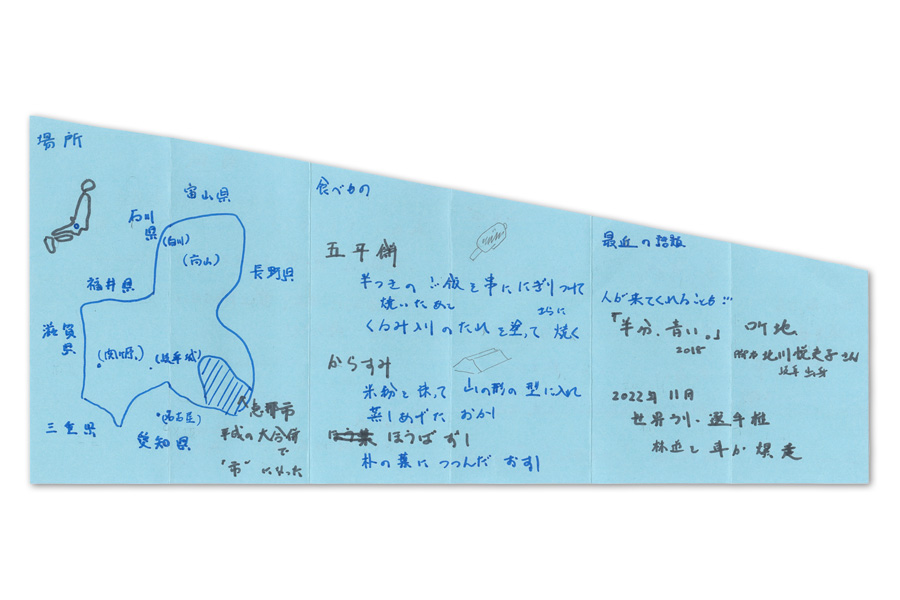 場所
富山県
石川県
(白川)
(高山)
長野県
福井県
滋賀県
(関ヶ原)
(岐阜城)
三重県
(名古屋)
愛知県
恵那市
平成の大合併
で
"市"になった
食べもの
五平餅
半つきのご飯を串ににぎりつけて
焼いたあと
さらに
くるみ入りのたれを塗って 焼く
からすみ
米粉を 山の形の型に入れ
蒸しあげた おかし
ほうばずし
朴の葉に つつんだ おすし
最近の話題
人が来てくれることも…
「半分、青い。」ロケ地
2018
北川悦吏子さん
岐阜出身
2022年 11月
世界ラリー選手権
林道を 車が 爆走